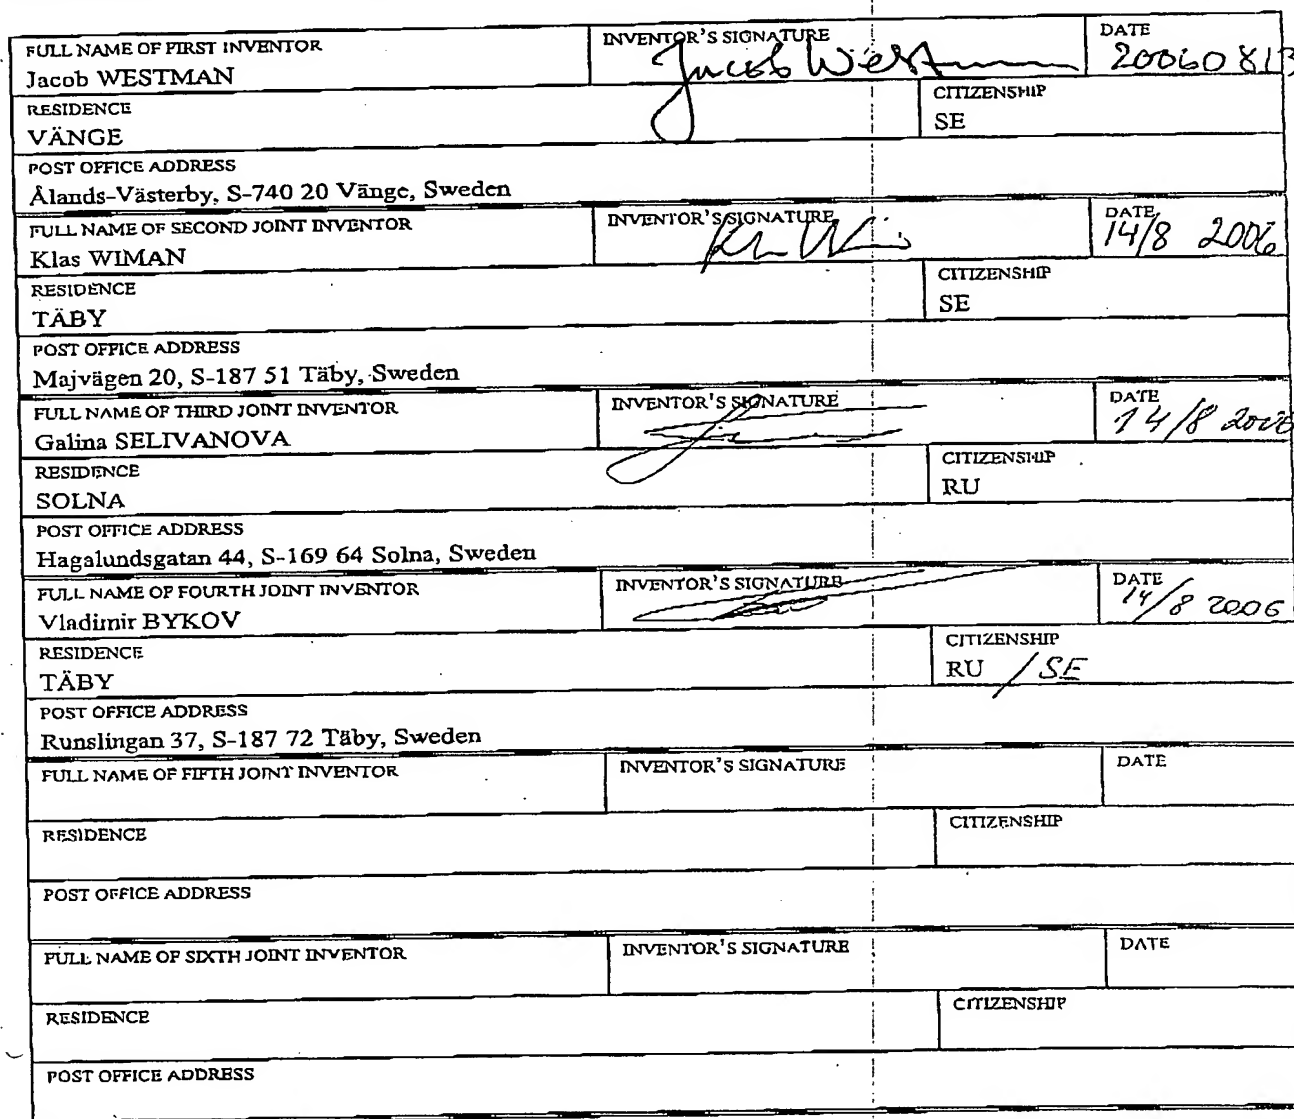 FULL NAME OF FIRST INVENTOR INVENTOR'S SIGNATURE DATE
Jacob WESTMAN Jacob Westman 20060813
RESIDENCE CITIZENSHIP
VÄNGE SE
POST OFFICE ADDRESS
Ålands-Västerby, S-740 20 Vänge, Sweden
FULL NAME OF SECOND JOINT INVENTOR INVENTOR'S SIGNATURE DATE
Klas WIMAN 14/8 2006
RESIDENCE CITIZENSHIP
TÄBY SE
POST OFFICE ADDRESS
Majvägen 20, S-187 51 Täby, Sweden
FULL NAME OF THIRD JOINT INVENTOR INVENTOR'S SIGNATURE DATE
Galina SELIVANOVA 14/8 2006
RESIDENCE CITIZENSHIP
SOLNA RU
POST OFFICE ADDRESS
Hagalundsgatan 44, S-169 64 Solna, Sweden
FULL NAME OF FOURTH JOINT INVENTOR INVENTOR'S SIGNATURE DATE
Vladimir BYKOV 14/8 2006
RESIDENCE CITIZENSHIP
TÄBY RU /SE
POST OFFICE ADDRESS
Runslingan 37, S-187 72 Täby, Sweden
FULL NAME OF FIFTH JOINT INVENTOR INVENTOR'S SIGNATURE DATE
RESIDENCE CITIZENSHIP
POST OFFICE ADDRESS
FULL NAME OF SIXTH JOINT INVENTOR INVENTOR'S SIGNATURE DATE
RESIDENCE CITIZENSHIP
POST OFFICE ADDRESS